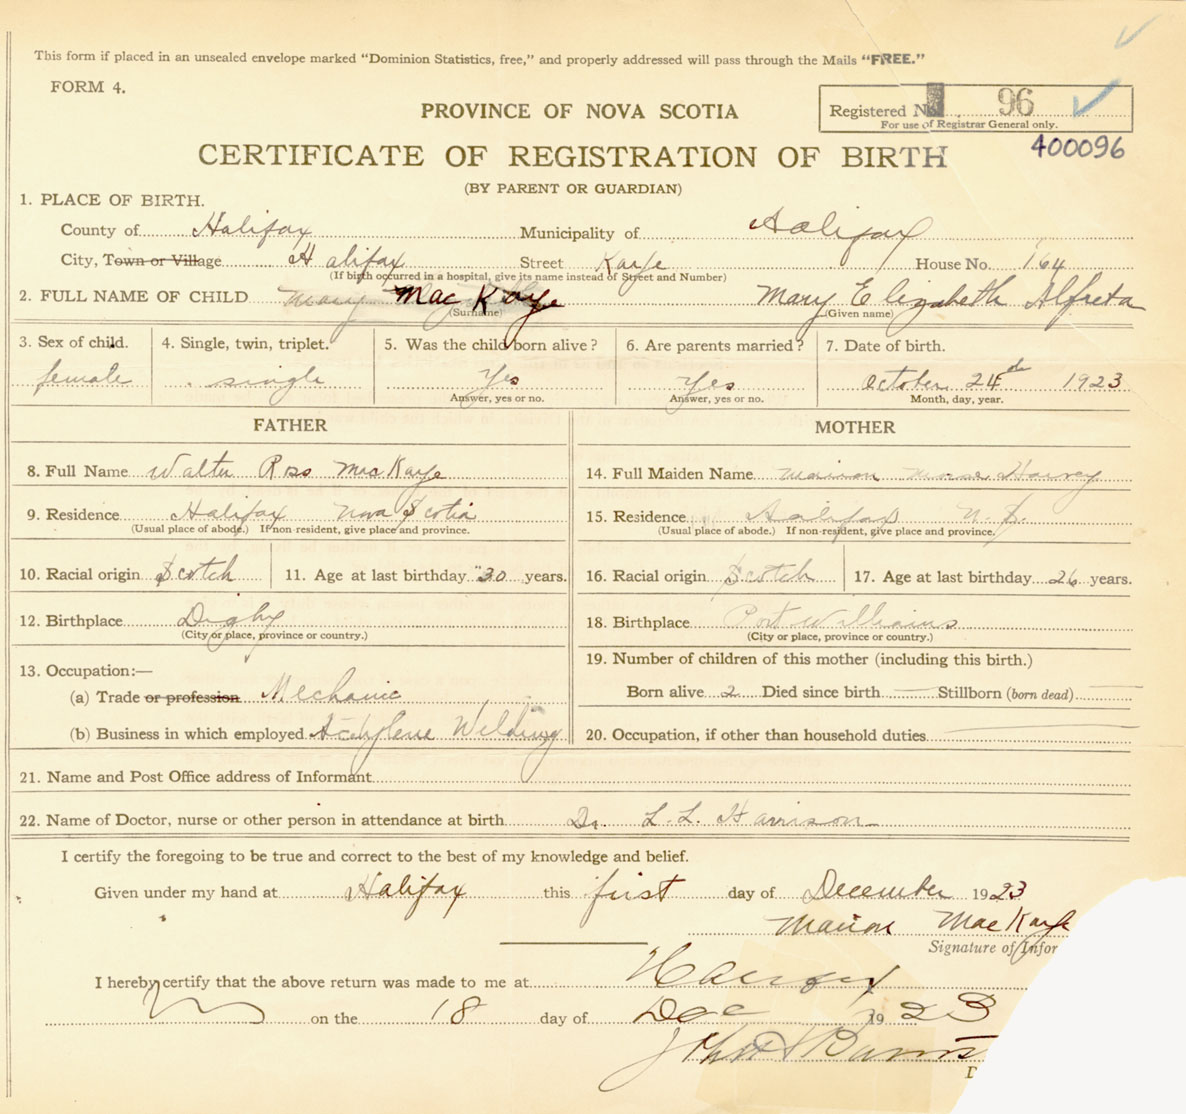 This form if placed in an unsealed envelope marked “Dominion Statistics, free,” and properly addressed will pass through the Mails “FREE.”
FORM 4.
PROVINCE OF NOVA SCOTIA
Registered No. 96
For use of Registrar General only.
CERTIFICATE OF REGISTRATION OF BIRTH
400096
(BY PARENT OR GUARDIAN)
1. PLACE OF BIRTH.
County of Halifax Municipality of Halifax
City, Town or Village Halifax Street Kaye House No. 164
(If birth occurred in a hospital, give its name instead of Street and Number)
2. FULL NAME OF CHILD Mary MacKaye Mary Elizabeth Alfreta
(Surname) (Given name)
3. Sex of child. 4. Single, twin, triplet. 5. Was the child born alive? 6. Are parents married? 7. Date of birth.
female single Yes Yes October 24th 1923
Answer, yes or no. Answer, yes or no. Month, day, year.
FATHER MOTHER
8. Full Name Walter Ross MacKaye
14. Full Maiden Name Marion Harvey
9. Residence Halifax Nova Scotia
15. Residence Halifax N.S.
(Usual place of abode.) If non-resident, give place and province.
(Usual place of abode.) If non-resident, give place and province.
10. Racial origin Scotch 11. Age at last birthday "30 years.
16. Racial origin Scotch 17. Age at last birthday 26 years.
12. Birthplace Digby
18. Birthplace Port Williams
(City or place, province or country.)
(City or place, province or country.)
13. Occupation:—
19. Number of children of this mother (including this birth.)
(a) Trade or profession Mechanic
Born alive 2 Died since birth — Stillborn (born dead) —
(b) Business in which employed Acetylene Welding
20. Occupation, if other than household duties —
21. Name and Post Office address of Informant
22. Name of Doctor, nurse or other person in attendance at birth Dr. L. L. Harrison
I certify the foregoing to be true and correct to the best of my knowledge and belief.
Given under my hand at Halifax this first day of December 1923
Marion MacKaye
Signature of Infor
I hereby certify that the above return was made to me at Halifax
on the 18 day of Dec 1923
John
D